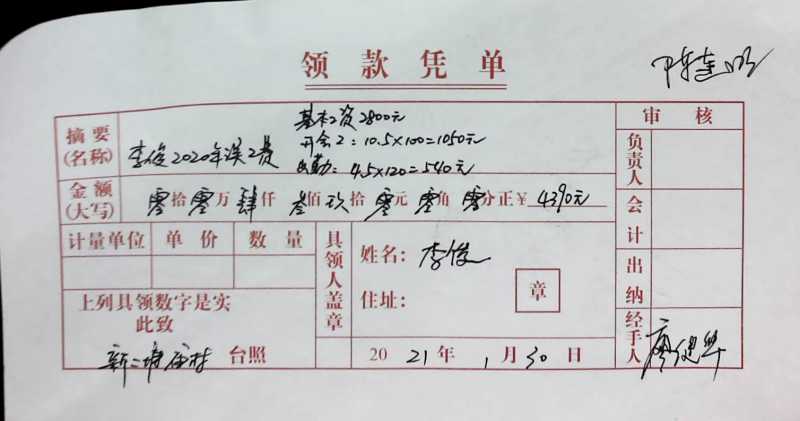 领款凭单
陈建明
摘要(名称) 李俊2020年误工费
基本工资2800元
开会工:10.5×100=1050元
出勤:4.5×120=540元
金额(大写) 零拾零万肆仟叁佰玖拾零元零角零分正¥4390元
计量单位 单价 数量
具领人盖章
姓名:李俊
住址:
章
上列具领数字是实
此致
新二塘 台照
2021年1月30日
审核
负责人
会计
出纳
经手人 廖健华